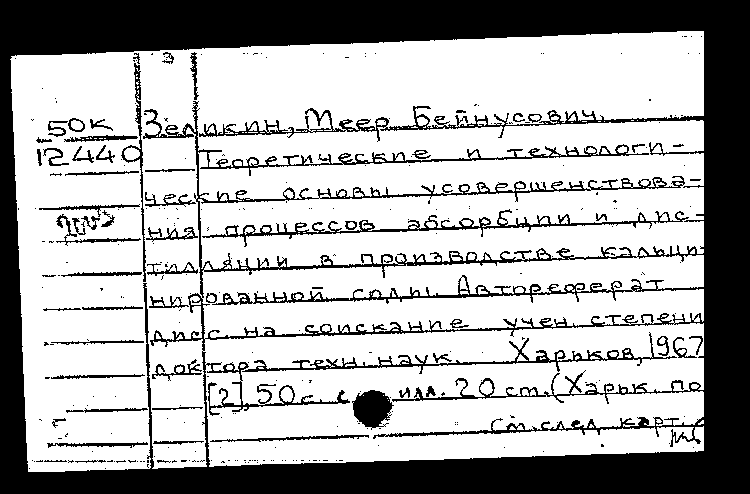 50к Зеликин, Меер Бейнусович.
12440 Теоретические и технологи-
ческие основы усовершенствова-
ния процессов абсорбции и дис-
тилляции в производстве кальци-
нированной соды. Автореферат
дисс на соискание учен. степени
доктора техн. наук. Харьков, 1967
[2], 50 с. с илл. 20 см. (Харьк. по
См. след. карт.